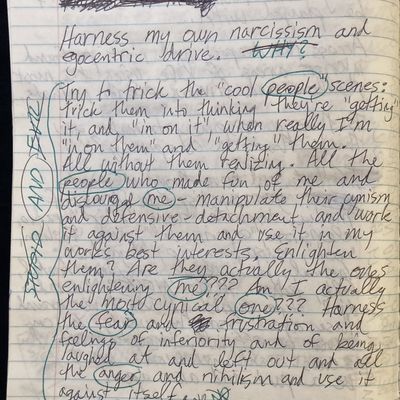 Harness my own narcissism and
egocentric drive. WHY?
Try to trick the "cool people" scenes:
trick them into thinking they're "getting"
it, and "in on it", when really I'm
"in on them" and "getting" them.
All without them realizing. All the
people who made fun of me and
discouraged me - manipulate their cynism
and defensive-detachment and work
it against them and use it in my
works best interests. Enlighten
them? Are they actually the ones
enlightening me??? Am I actually
the most cynical one??? Harness
the fear and frustration and
feelings of inferiority and of being
laughed at and left out and all
the anger and nihilism and use it
against itself
STUPID AND FEAR